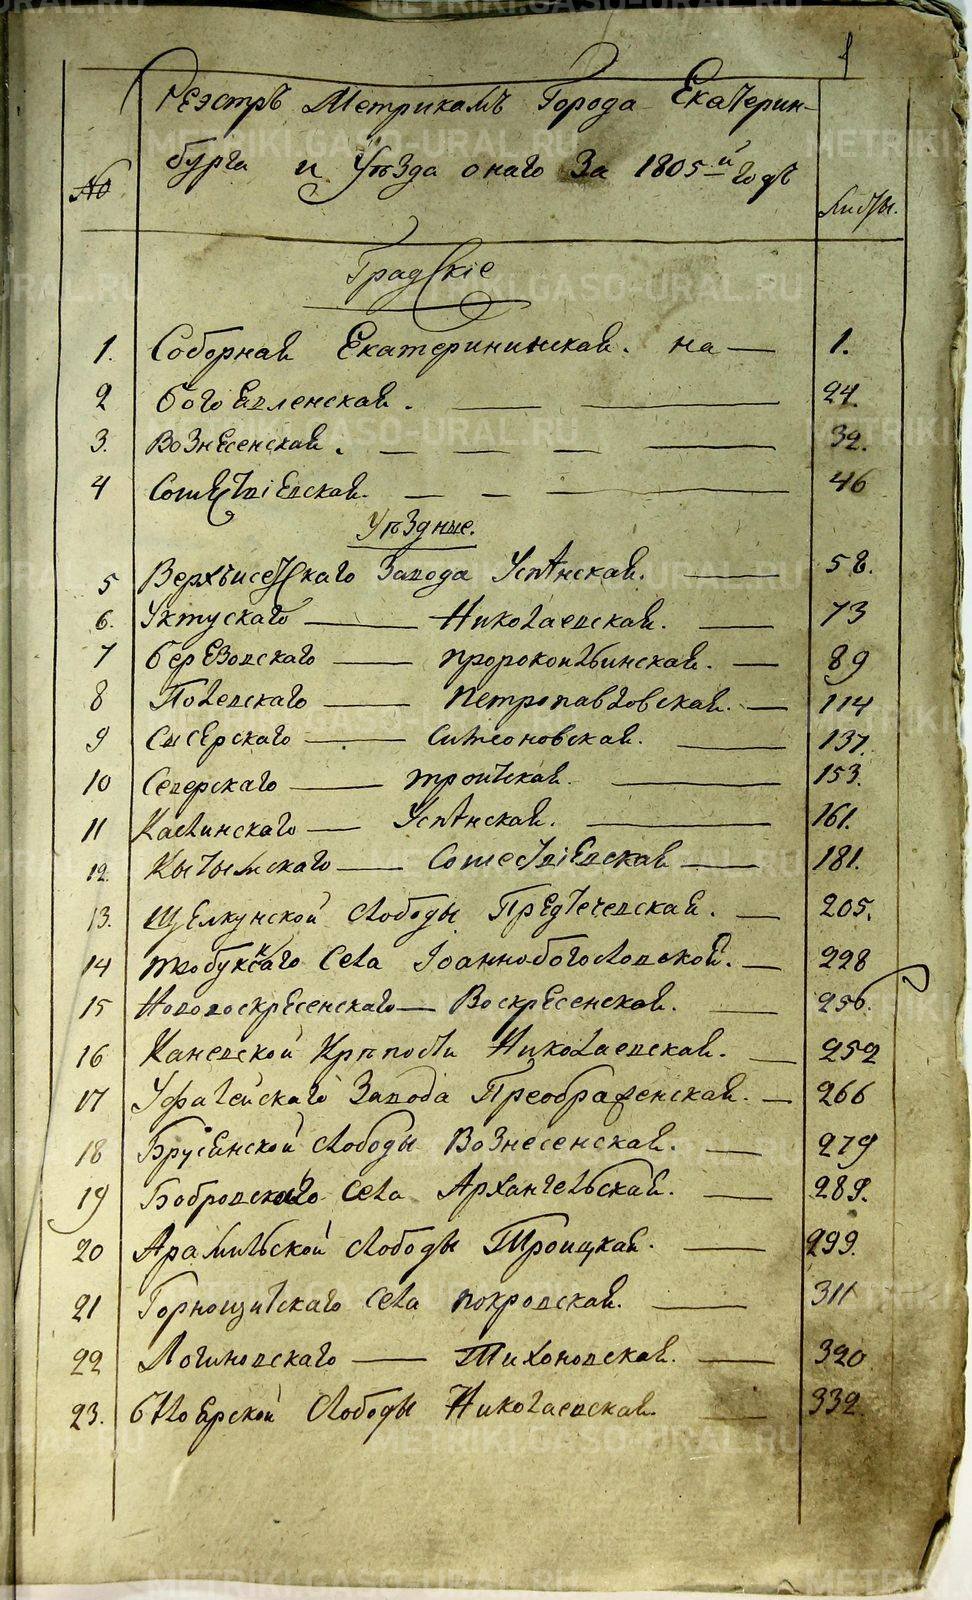 Реэстръ Метрикамъ Города Екатерин-
бурга и Уѣзда онаго За 1805й годъ
№
Листы.
Градскіе
1. Соборная Екатерининская. на — 1.
2 Богоявленская. — 24.
3. Вознесенская. — 32.
4 Сошествіевская. — 46
Уѣздные.
5 Верхъисетскаго Завода Успѣнская. — 58.
6. Уктускаго — Николаевская. — 73
7 Березовскаго — пророкоильинская. — 89
8 Полевскаго — Петропавловская. — 114
9 Сысерскаго — Симеоновская. — 137.
10 Северскаго — троицкая. — 153.
11 Каслинскаго — Успѣнская. — 161.
12. Кыштымскаго — Сошествіевская — 181.
13. Щелкунской Слободы Предтечевская. — 205.
14 Тюбукскаго Села Іоаннобогословской. — 228
15 Нововоскресенскаго — Воскресенская. — 250.
16 Каневской Крѣпости Николаевская. — 259
17 Уфалейскаго Завода Преображенская. — 266
18 Брусянской Слободы Вознесенская. — 279
19 Бобровскаго Села Архангельская. — 289.
20 Арамильской Слободы Троицкая. — 299.
21 Горнощитскаго Села покровская. — 311
22 Логиновскаго — Тихоновская. — 320
23. Бѣлоярской Слободы Николаевская. — 332.
METRIKI.GASO-URAL.RU